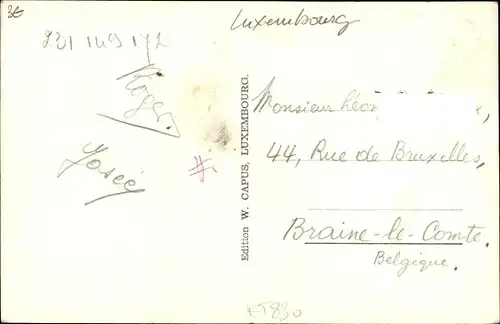 3€
Luxembourg
231 149 172
Roger.
Josée
Edition W. CAPUS, LUXEMBOURG.
Monsieur Léon
44, Rue de Bruxelles,
Braine-le-Comte.
Belgique.